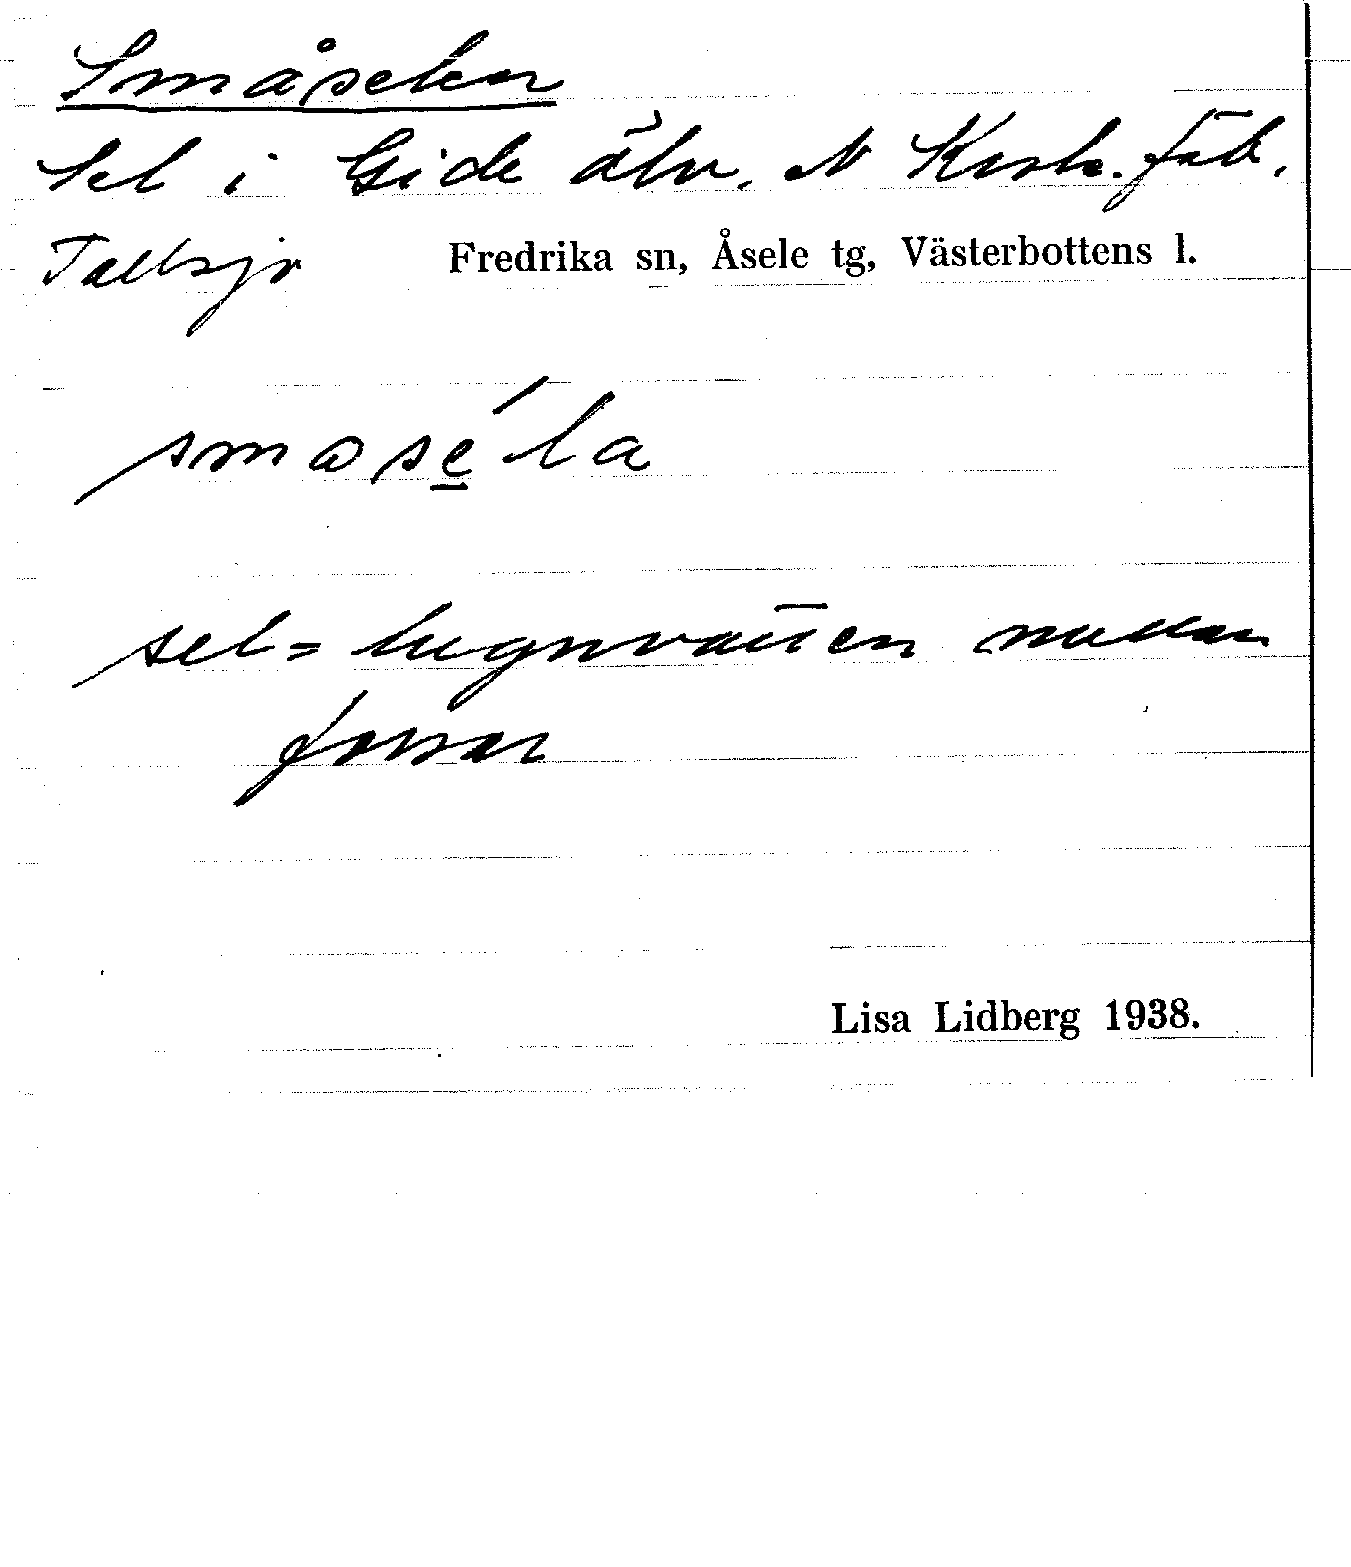 Småselen
Sel i Gide älv. N Krok. fäb.
Tallsjö Fredrika sn, Åsele tg, Västerbottens l.
smase̲´la
sel = lugnvatten mellan
forsar
Lisa Lidberg 1938.